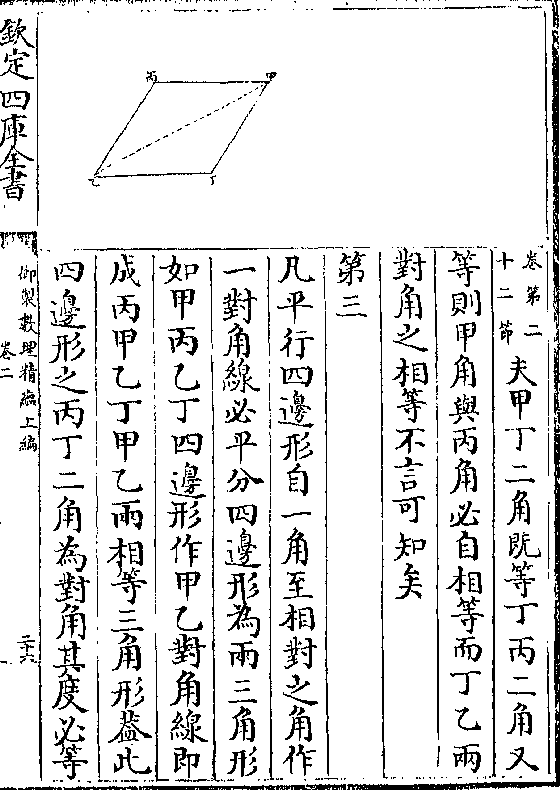 卷第二
十二節
夫甲丁二角既等丁丙二角又
等則甲角與丙角必自相等而丁乙兩
對角之相等不言可知矣
第三
凡平行四邊形自一角至相對之角作
一對角線必平分四邊形為兩三角形
如甲丙乙丁四邊形作甲乙對角線即
成丙甲乙丁甲乙兩相等三角形蓋此
四邊形之丙丁二角為對角其度必等
欽定四庫全書
御製數理精蘊上編
卷二
二十六
丙
甲
乙
丁